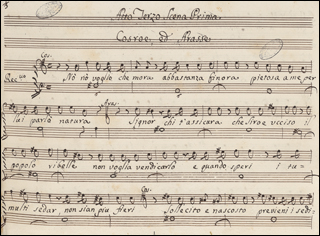 Atto Terzo Scena Prima
Cosroe, ed Arasse
Cos.
Rec.vo Nò nò voglio che mora abbastanza finora pietosa a me per
Aras.
lui parlò natura Signor chi t'assicura che Siroe ucciso il
popolo ribelle non voglia vendicarlo e quando speri i tu-
Cos.
multi sedar non sian più fieri Sollecito e nascosto previeni i sedi-